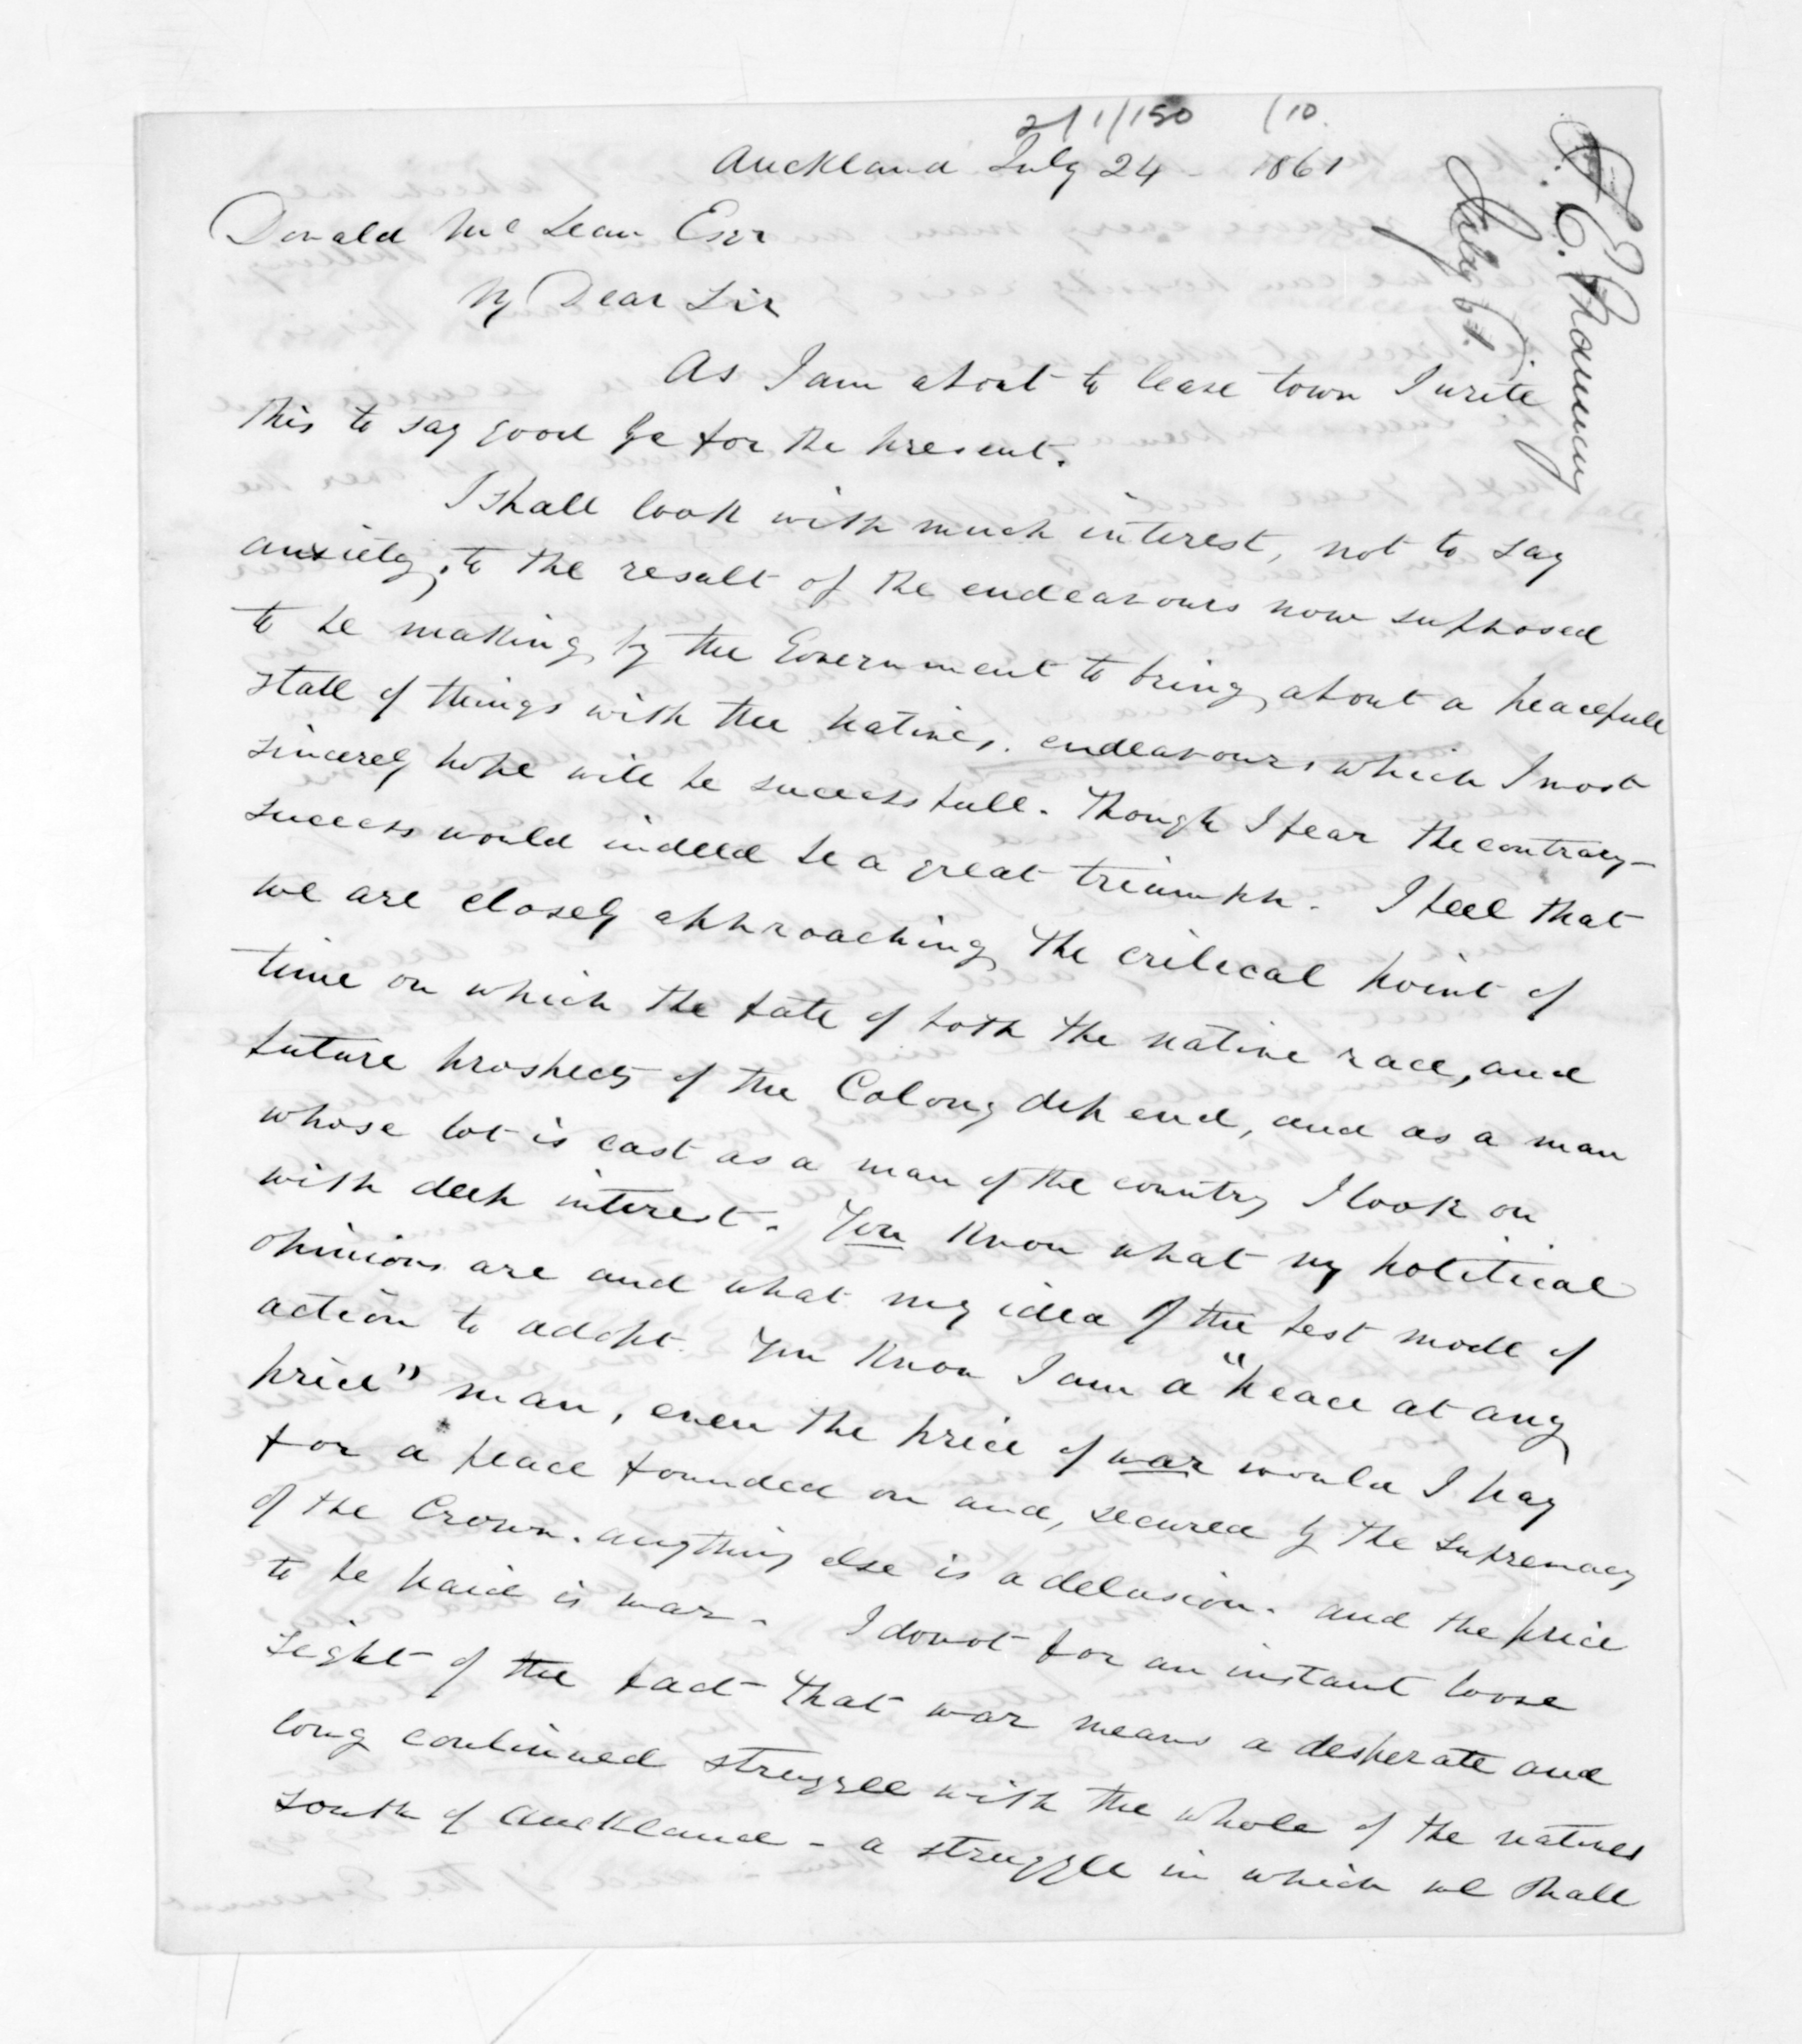 2/1/150 (10.
Auckland July 24 - 1861
F. E. Maning
July 61.
Donald McLean Esqr
My Dear Sir
As I am about to leave town I write
this to say good bye for the present.
I shall look with much interest, not to say
anxiety, to the result of the endeavours now supposed
to be making by the Government to bring about a peacefull
state of things with the natives. endeavours which I most
sincerely hope will be successfull. though I fear the contrary -
success would indeed be a great triumph. I feel that
we are closely approaching the critical point of
time on which the fate of both the native race, and
future prospects of the Colony depend, and as a man
whose lot is cast as a man of the country I look on
with deep interest. You know what my political
opinions are and what my idea of the best mode of
action to adopt. You know I am a "peace at any
price" man, even the price of war would I pay
for a peace founded on and, secured by the supremacy
of the Crown. anything else is a delusion. and the price
to be paid is war. I do not for an instant loose
sight of the fact that war means a desperate and
long continued struggle with the whole of the natives
south of Auckland - a struggle in which we shall